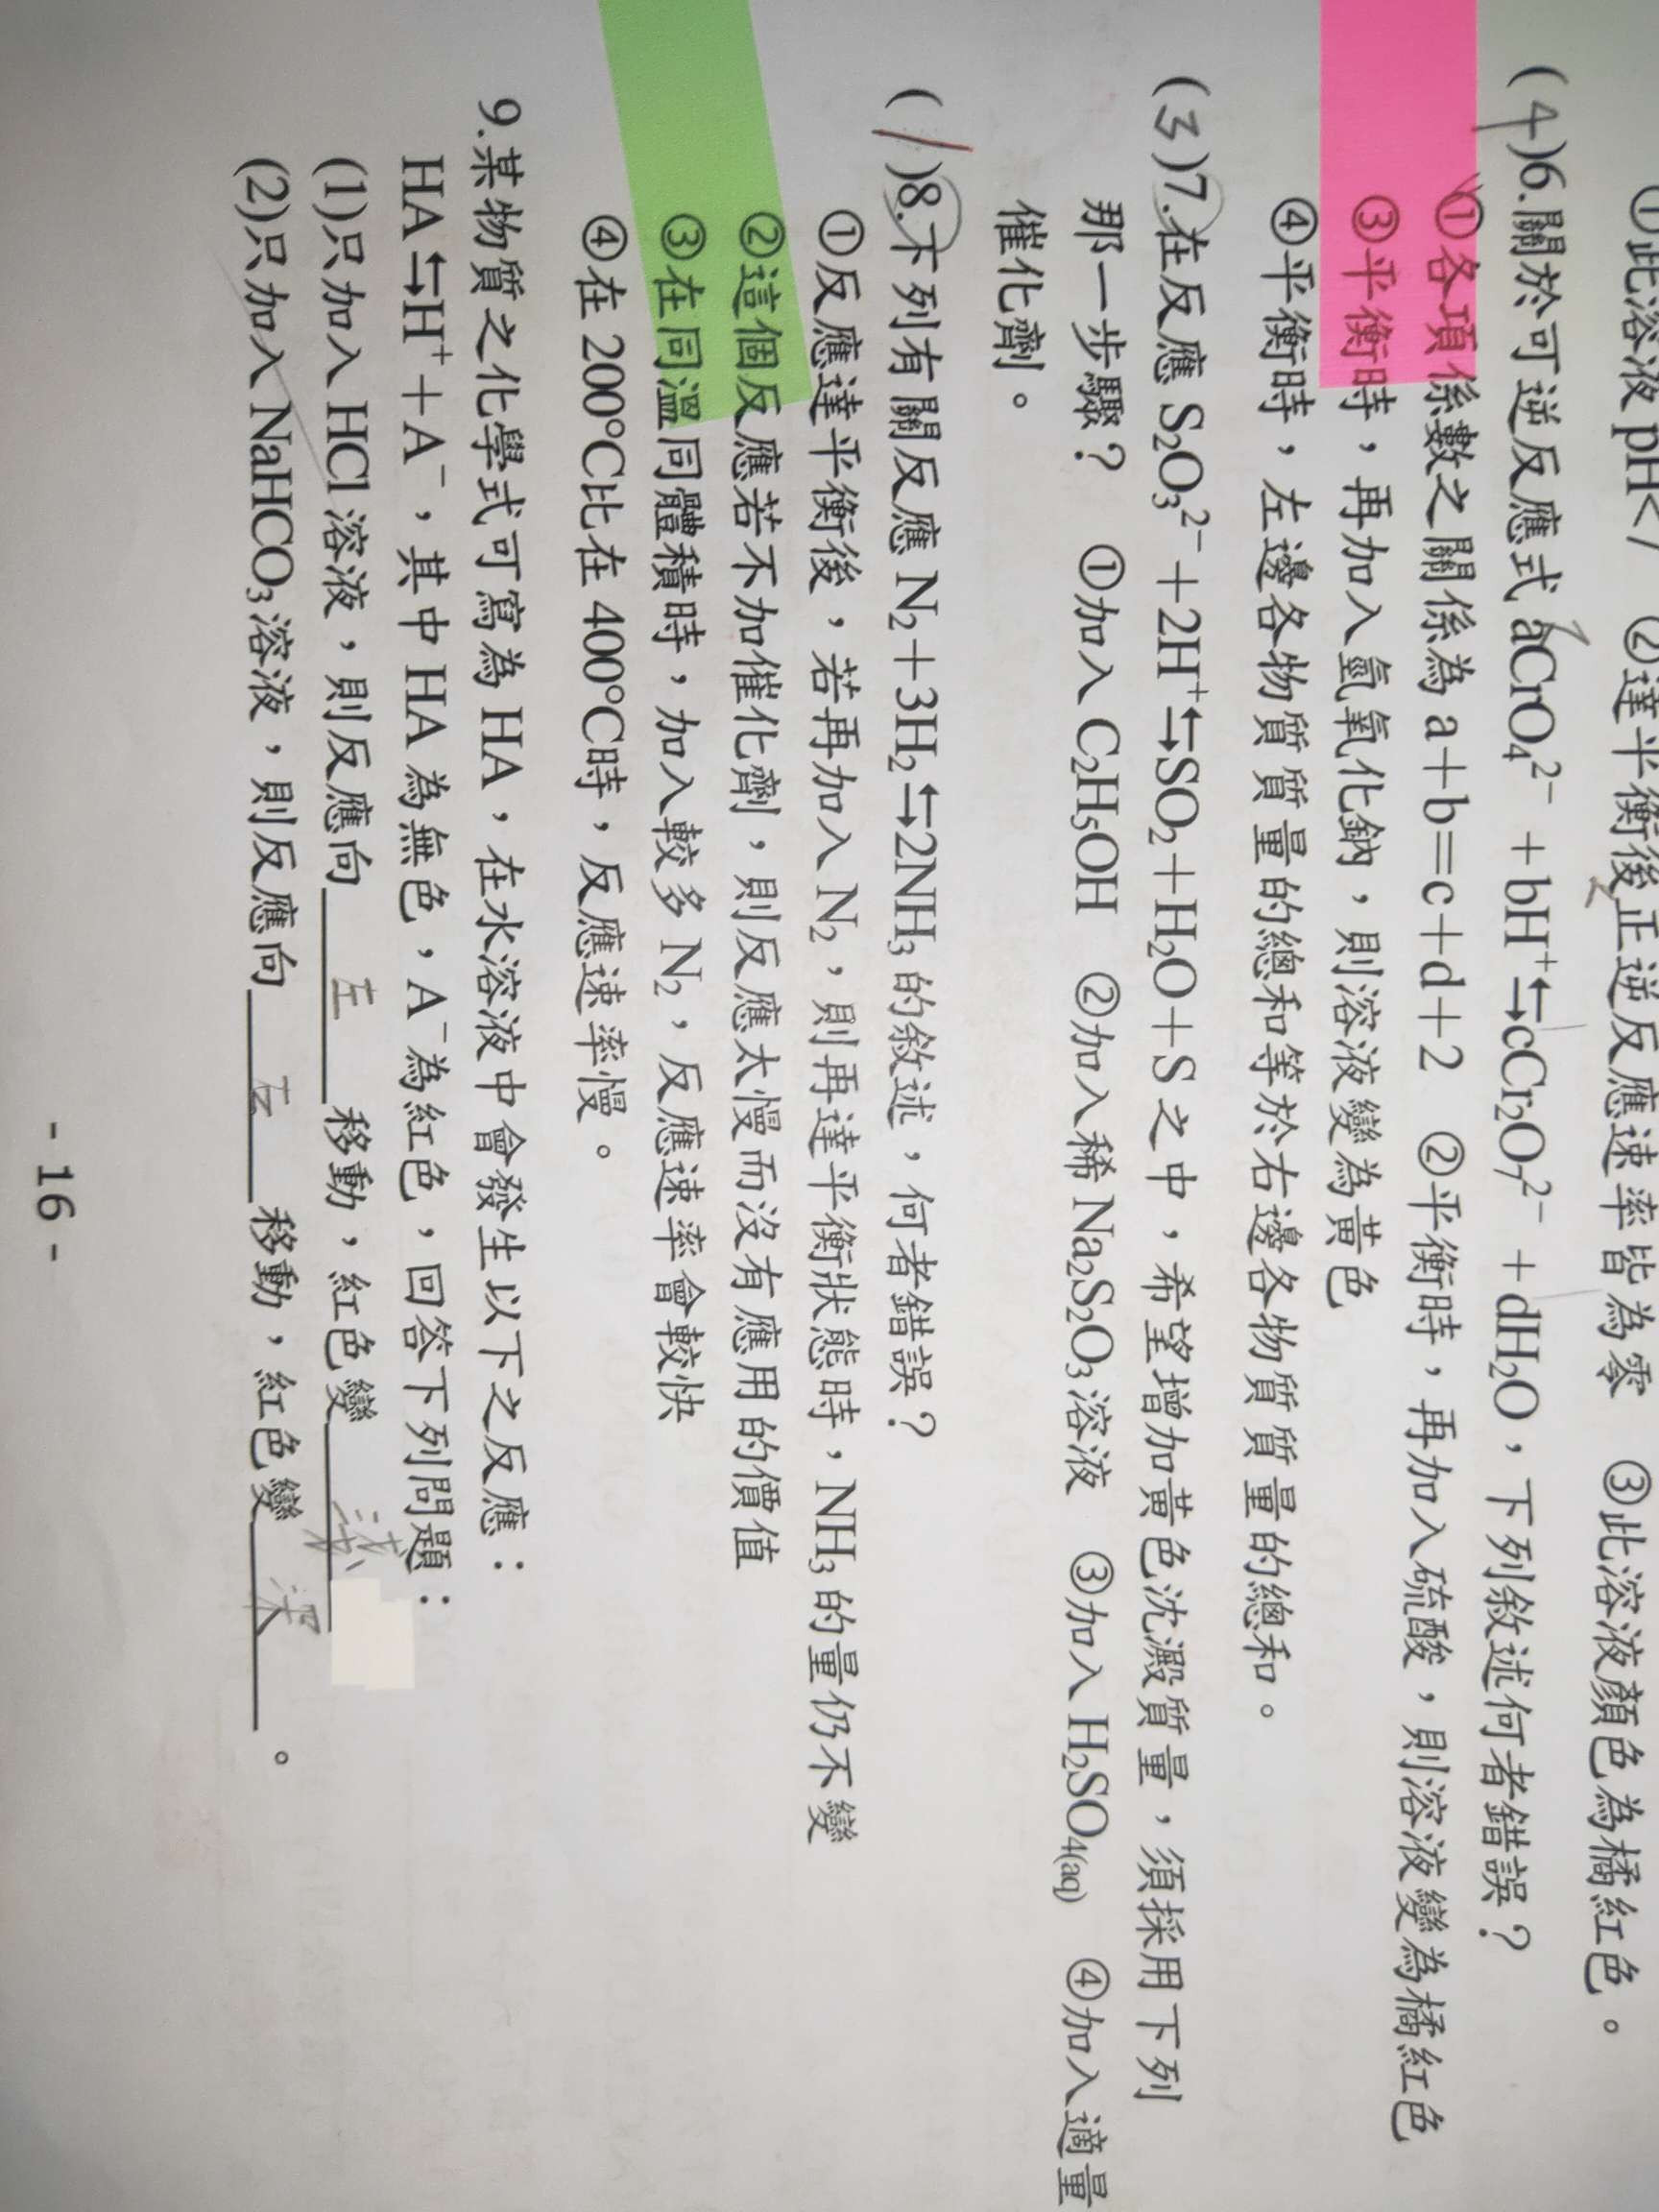 ①此溶液 pH<7 ②達平衡後正逆反應速率皆為零 ③此溶液顏色為橘紅色。
(4)6.關於可逆反應式 aCrO₄²⁻ +bH⁺⇆cCr₂O₇²⁻ +dH₂O,下列敘述何者錯誤?
①各項係數之關係為 a+b=c+d+2 ②平衡時,再加入硫酸,則溶液變為橘紅色
③平衡時,再加入氫氧化鈉,則溶液變為黃色
④平衡時,左邊各物質質量的總和等於右邊各物質質量的總和。
(3)7.在反應 S₂O₃²⁻+2H⁺⇆SO₂+H₂O+S 之中,希望增加黃色沈澱質量,須採用下列
那一步驟? ①加入 C₂H₅OH ②加入稀 Na₂S₂O₃溶液 ③加入 H₂SO₄(aq) ④加入適量
催化劑。
(1)8.下列有關反應 N₂+3H₂⇆2NH₃的敘述,何者錯誤?
①反應達平衡後,若再加入 N₂,則再達平衡狀態時,NH₃的量仍不變
②這個反應若不加催化劑,則反應太慢而沒有應用的價值
③在同溫同體積時,加入較多 N₂,反應速率會較快
④在 200°C比在 400°C時,反應速率慢。
9.某物質之化學式可寫為 HA,在水溶液中會發生以下之反應:
HA⇆H⁺+A⁻,其中 HA 為無色,A⁻為紅色,回答下列問題:
(1)只加入 HCl 溶液,則反應向 左 移動,紅色變 淺 。
(2)只加入 NaHCO₃溶液,則反應向 右 移動,紅色變 深 。
- 16 -